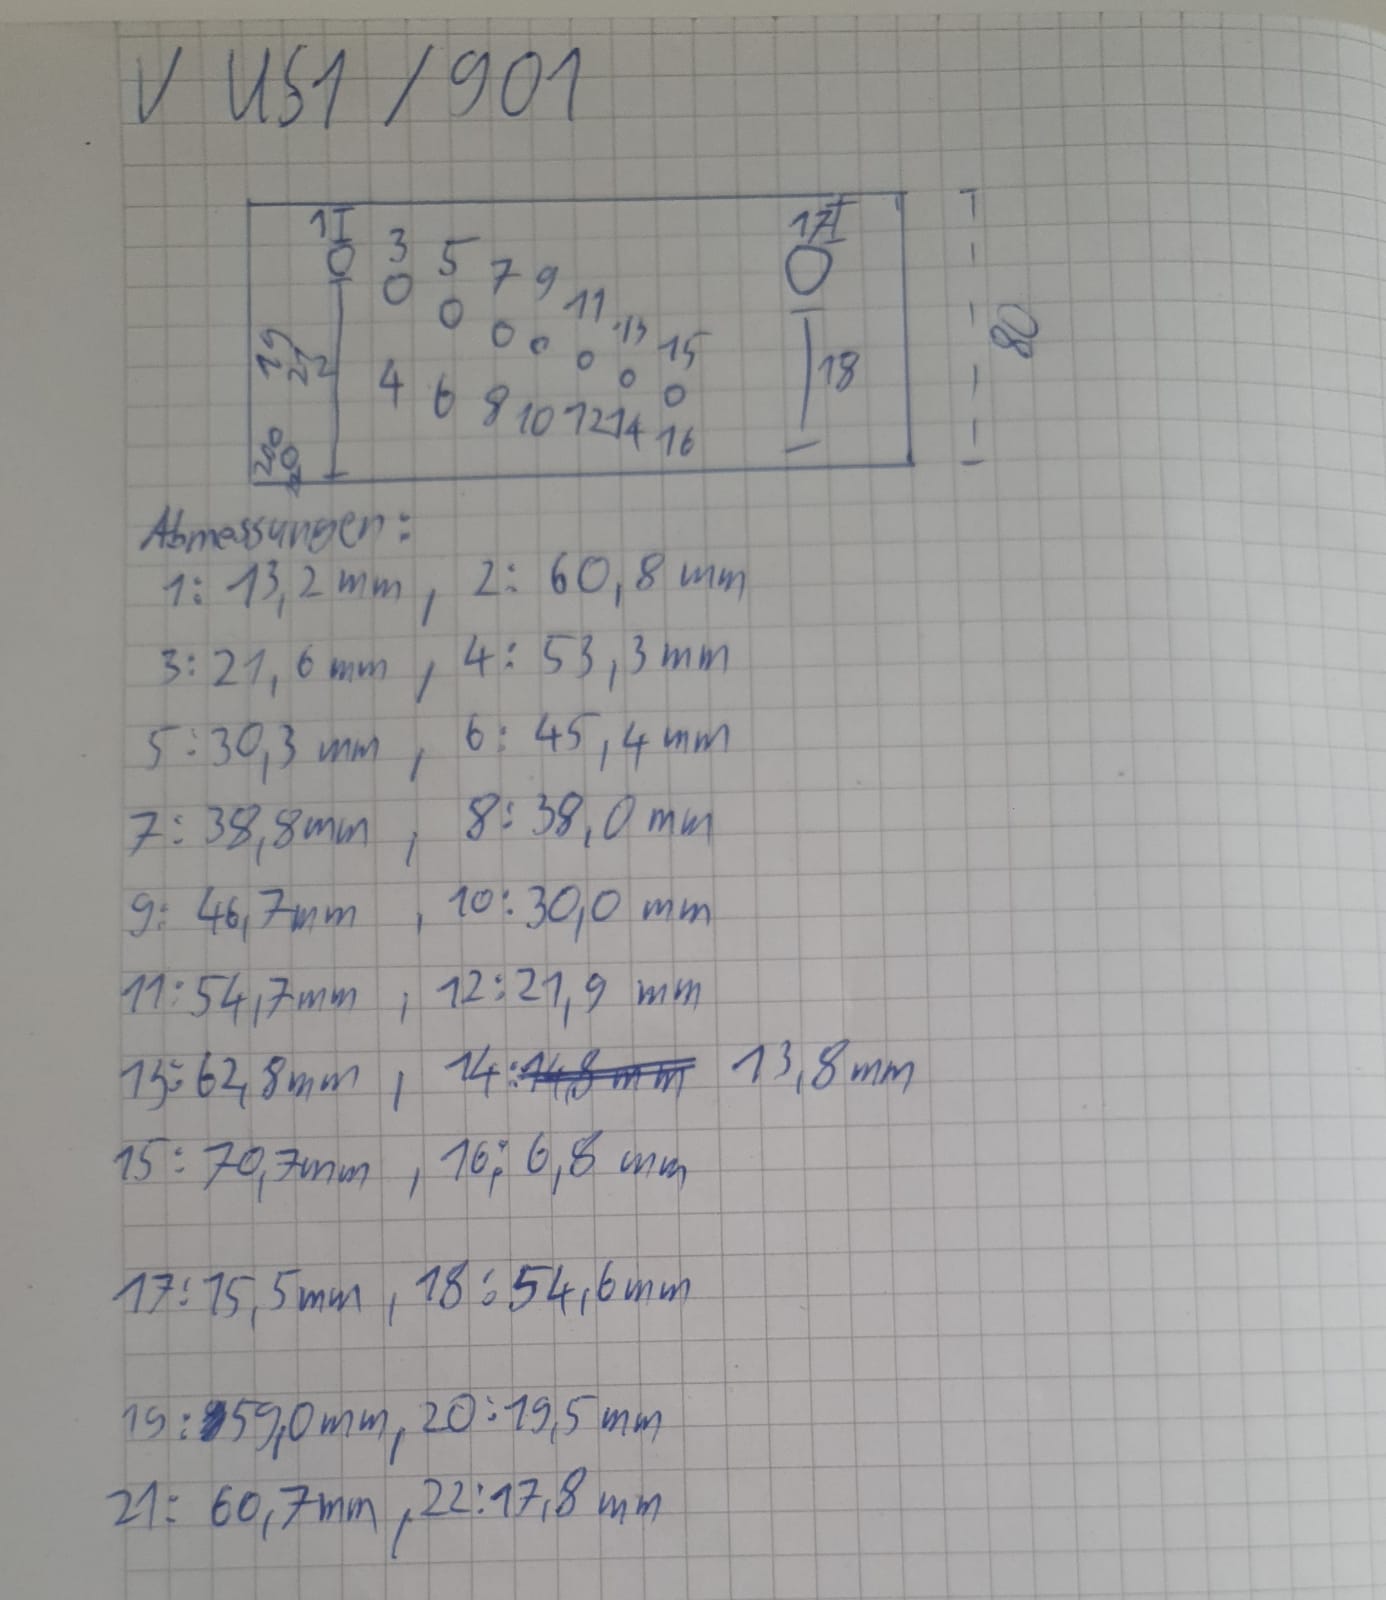 V US1 / 901
1 I
3
5
7
9
11
13
15
17 I
19
21
2
4
6
8
10
12
14
16
18
80
Abmessungen:
1: 13,2 mm, 2: 60,8 mm
3: 21,6 mm, 4: 53,3 mm
5: 30,3 mm, 6: 45,4 mm
7: 38,8 mm, 8: 38,0 mm
9: 46,7 mm, 10: 30,0 mm
11: 54,7 mm, 12: 21,9 mm
13: 62,8 mm, 14: 14,8 mm 13,8 mm
15: 70,7 mm, 16: 6,8 mm
17: 15,5 mm, 18: 54,6 mm
19: 59,0 mm, 20: 19,5 mm
21: 60,7 mm, 22: 17,8 mm